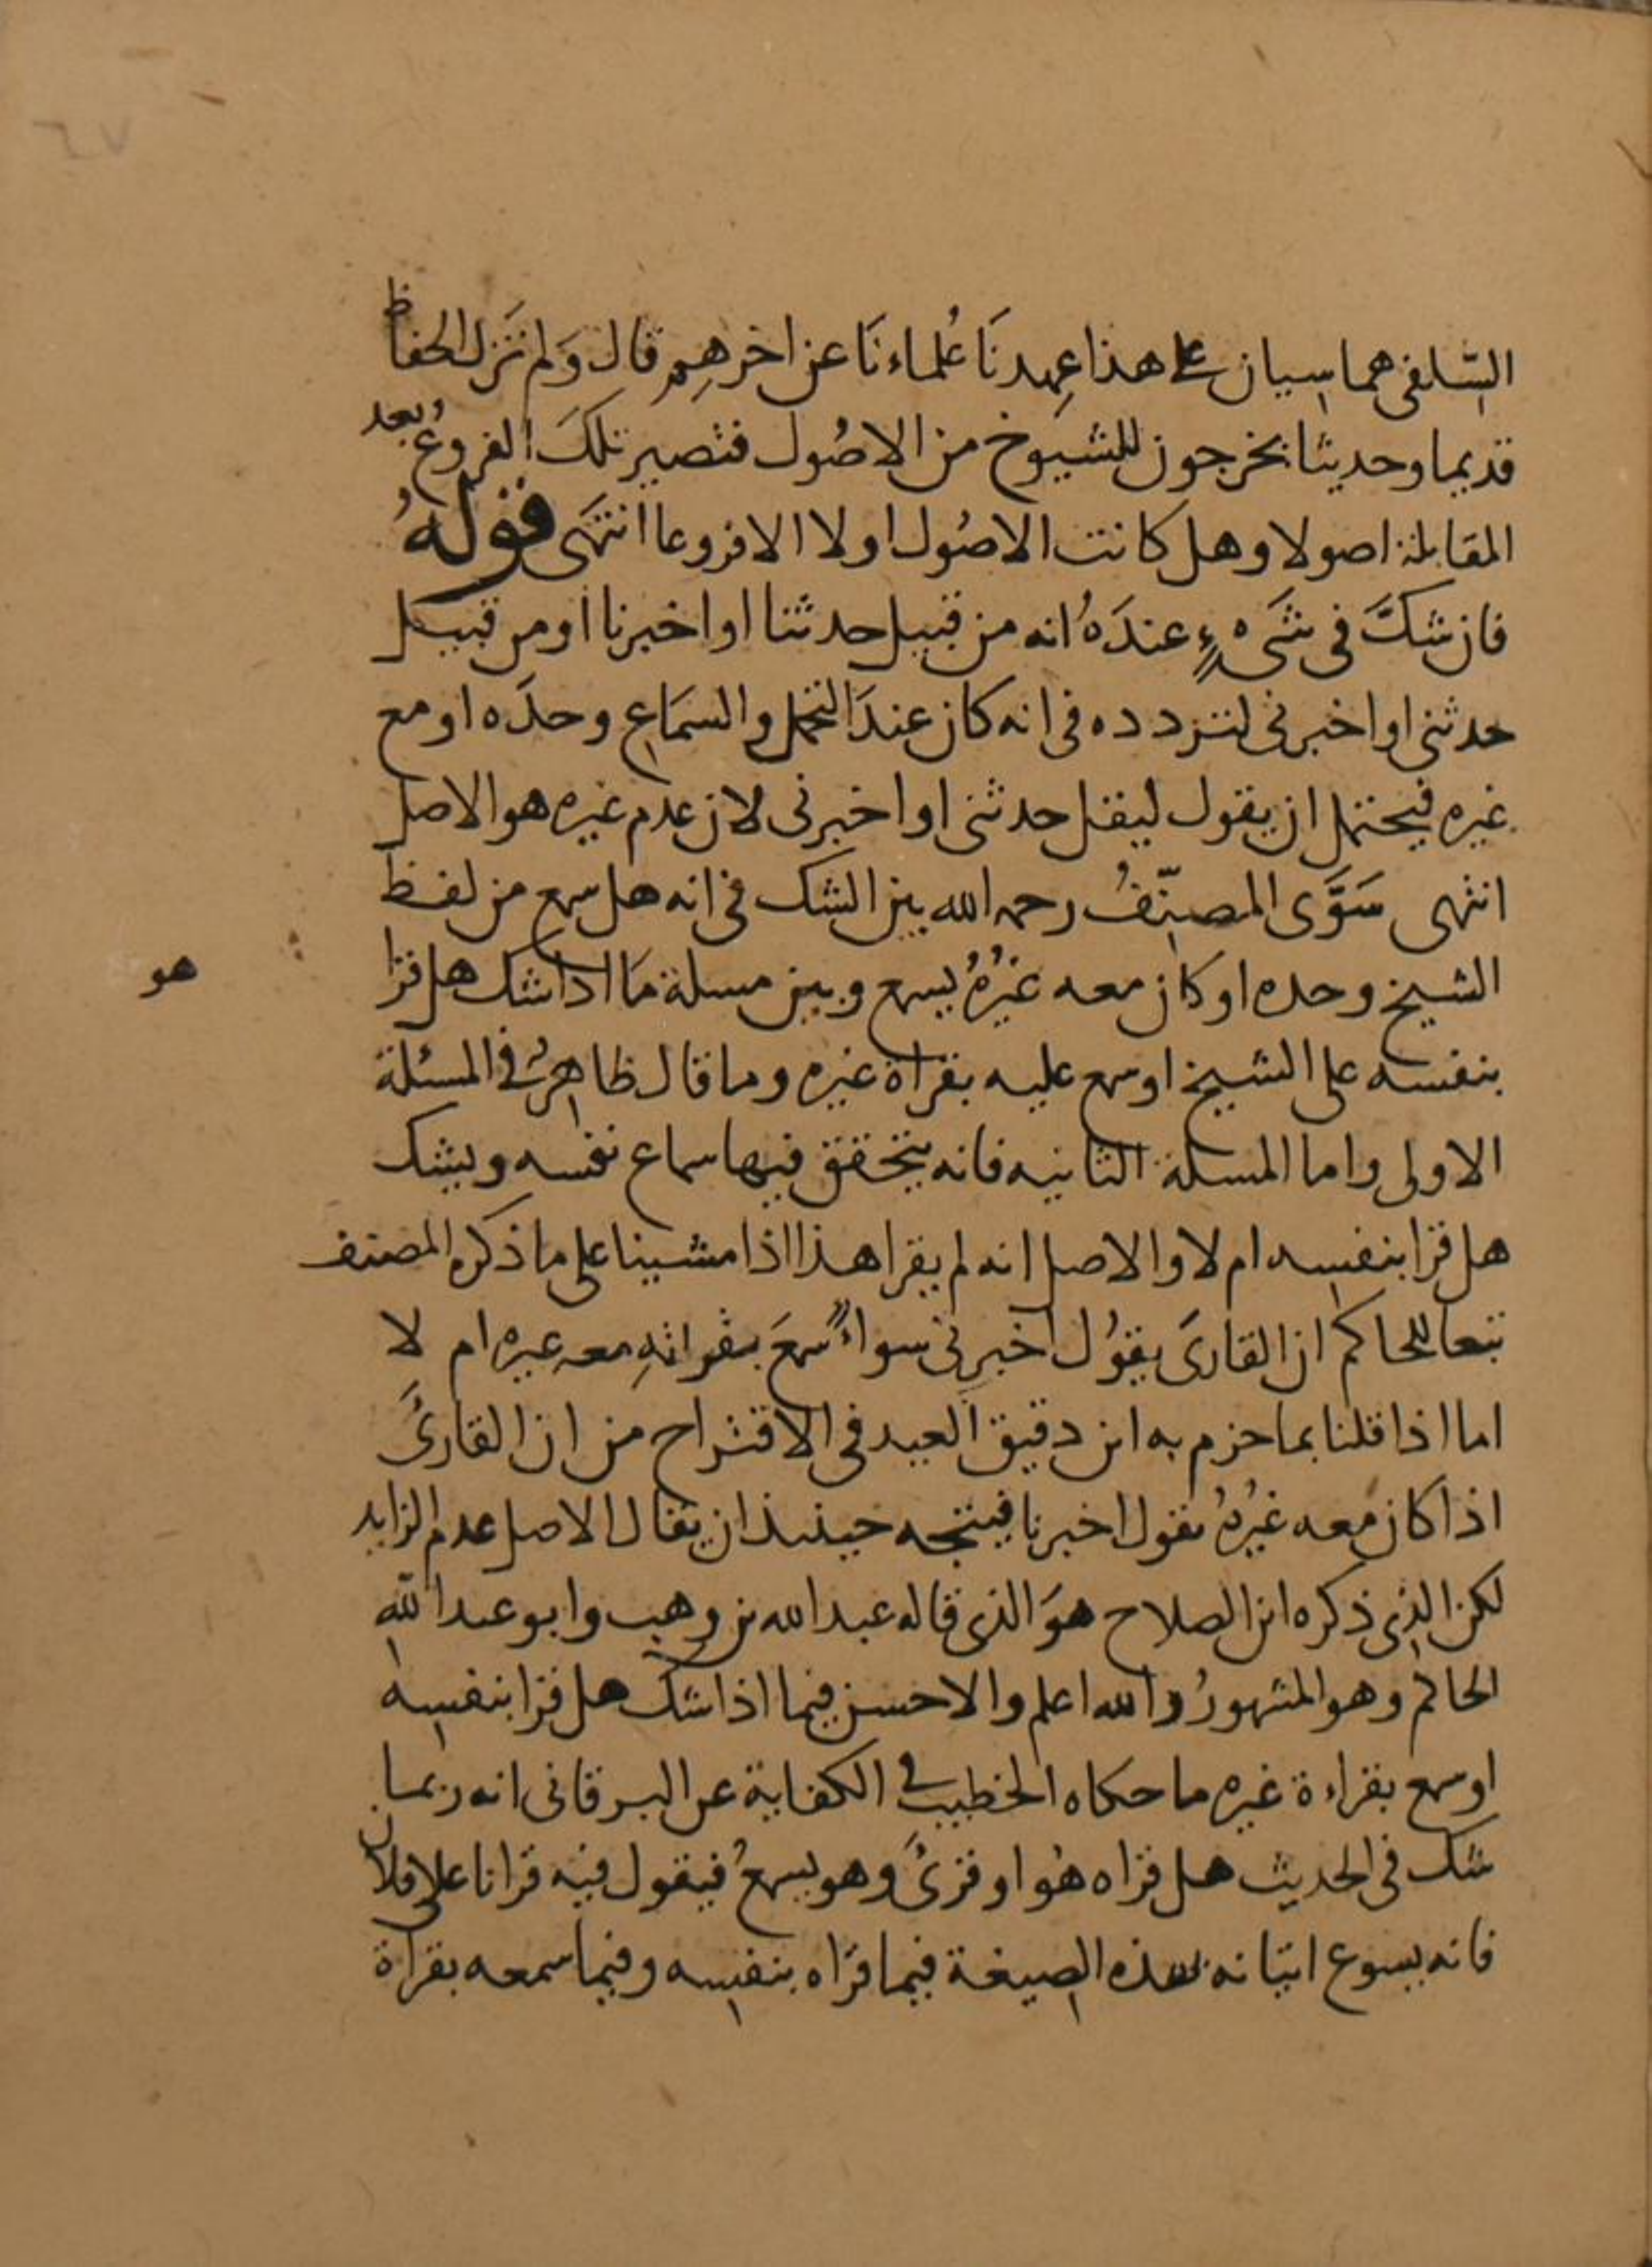 ٦٧
السّلفى هما سيان على هذا عهدنَا عُلماءنَا عن اخرهِم قال وَلم تزَل الحفاظ
قديما وحديثا يخرجون للشيوخ من الاصُول فتصير تلكَ الفروعُ بعد
المقابلة اصولا وهل كانت الاصُول اولا الا فروعا انتهَى قولهُ
فان شكَّ فى شىءٍ عندَهُ انه من قبيل حدثنا او اخبرنا او من قبيل
حدثنى او اخبرنى لتردده فى انه كان عندَ التحمل والسمَاعِ وحدَه او مع
غيره فيحتمل ان يقول ليقل حدثنى او اخبرنى لان عدم غيره هو الاصل
انتهى سَوَّى المصنّفُ رحمه الله بين الشك فى انه هل سمع من لفظ
الشيخ وحده او كان معه غيرُهُ يسمع وبين مسلة مَا اذا شك هل قرا
هو
بنفسه على الشيخ او سمع عليه بقراة غيره وما قال ظاهرٌ فى المسئلة
الاولى واما المسلة الثانيه فانه يتحقق فيها سماع نفسه ويشك
هل قرا بنفسه ام لا والاصل انه لم يقرا هذا اذا مشينا على ما ذكره المصنف
تبعا للحاكم ان القارىَ يقوُل اخبرنى سواءً سمعَ بقراتهِ معه غيره ام لا
اما اذا قلنا بما جزم به ابن دقيق العيد فى الاقتراح من ان القارئَ
اذا كان معه غيرُهُ يقول اخبرنا فيتجه حينئذ ان يقال الاصل عدم الزايد
لكن الذى ذكره ابن الصلاح هوَ الذى قاله عبد الله بن وهب وابو عبد الله
الحاكم وهو المشهورُ والله اعلم والاحسن فيما اذا شك هل قرا بنفسه
او سمع بقراءة غيره ما حكاه الخطيب فى الكفاية عن البرقانى انه ربما
شك فى الحديث هل قراه هُو او قرىُ وهو يسمعُ فيقول فيه قرانا على فلان
فانه يسوع اتيانه بهذه الصيغة فيما قرَاه بنفسه وفيما سمعه بقراة